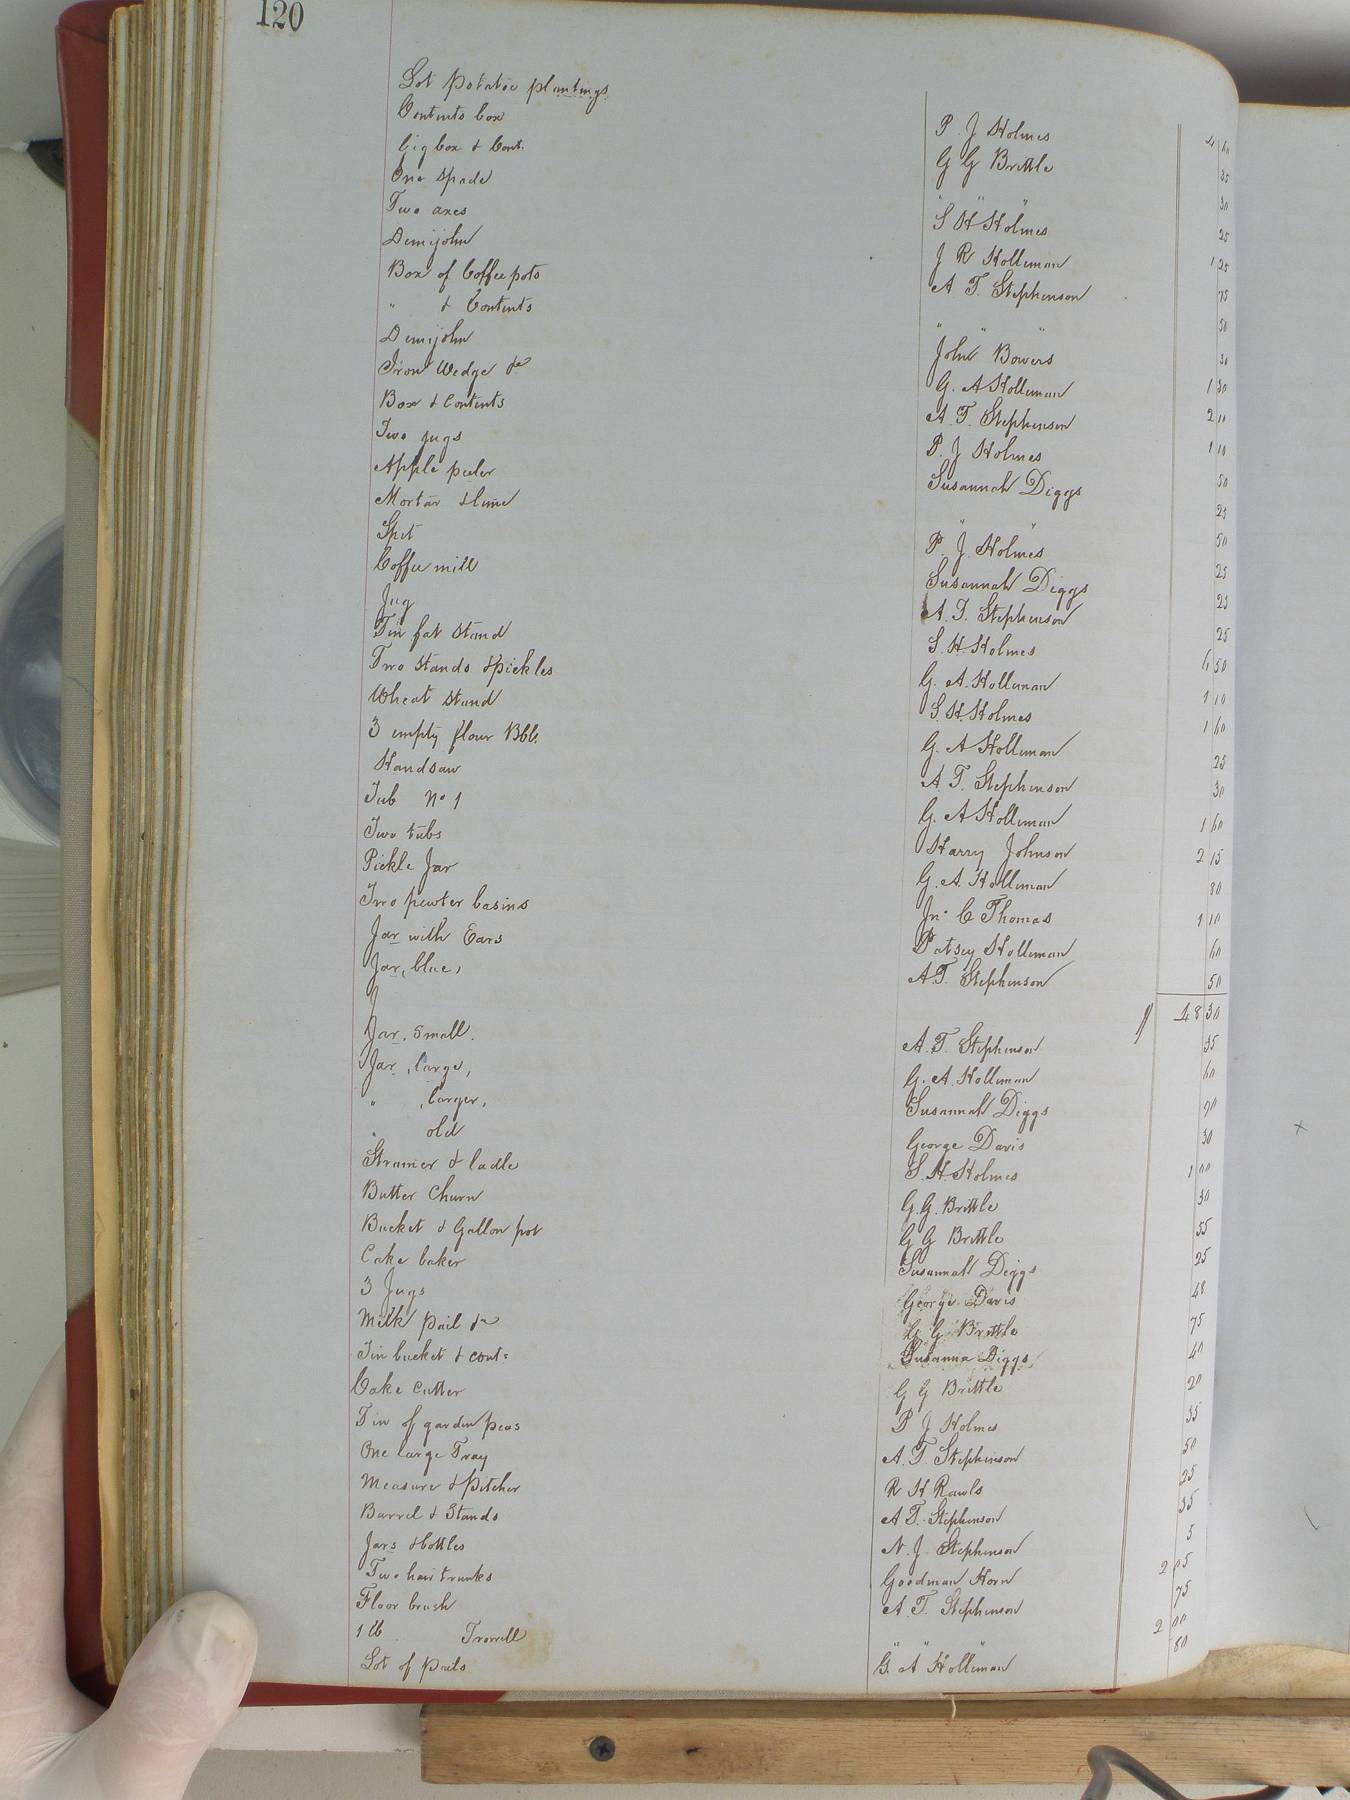 120
Lot potatoe plantings P. J Holmes 4 60
Contents box G G Brittle 35
Gig box & Cont. " " " 30
One spade S H Holmes 25
Two axes J R Holleman 1 25
Demijohn A T. Stephenson 75
Box of Coffeepots " " " 50
" & Contents John Bowers 30
Demijohn G. A Holleman 1 30
Iron Wedge &c A. T. Stephenson 2 10
Box & Contents P. J Holmes 1 10
Two jugs Susannah Diggs 50
Apple peeler " " 25
Mortar & lime P. J. Holmes 50
Spit Susannah Diggs 25
Coffee mill A. T. Stephenson 25
Jug S. H. Holmes 25
Tin fat stand G. A. Holleman 50
Two stands & pickles S. H. Holmes 1 10
Wheat stand G. A Holleman 1 60
3 empty flour Bbls. A. T. Stephenson 25
Handsaw G. A Holleman 30
Tub No 1 Harry Johnson 1 60
Two tubs G. A. Holleman 2 15
Pickle Jar Jno C Thomas 80
Two pewter basins Patsey Holleman 1 10
Jar with Ears A. T. Stephenson 60
Jar, blue, 50
48 30
Jar, small. A. T. Stephenson 35
Jar, large, G. A. Holleman 60
" , larger, Susannah Diggs 90
" old George Davis 30
Strainer & ladle S. H. Holmes 1 00
Butter Churn G. G. Brittle 30
Bucket & Gallon pot G G Brittle 55
Cake baker Susannah Diggs 25
3 Jugs George Davis 48
Milk pail &c G G Brittle 75
Tin bucket & cont: Susanna Diggs 40
Cake cutter G G Brittle 20
Tin of garden peas P J Holmes 35
One large Tray A. T. Stephenson 50
Measure & Pitcher R H Rawls 25
Barrel & Stands A T. Stephenson 35
Jars & bottles N. J. Stephenson 5
Two hair trunks Goodman Horn 2 05
Floor brush A. T. Stephenson 75
1 lb Trowell " " " 2 00
Lot of pails G. A Holleman 80